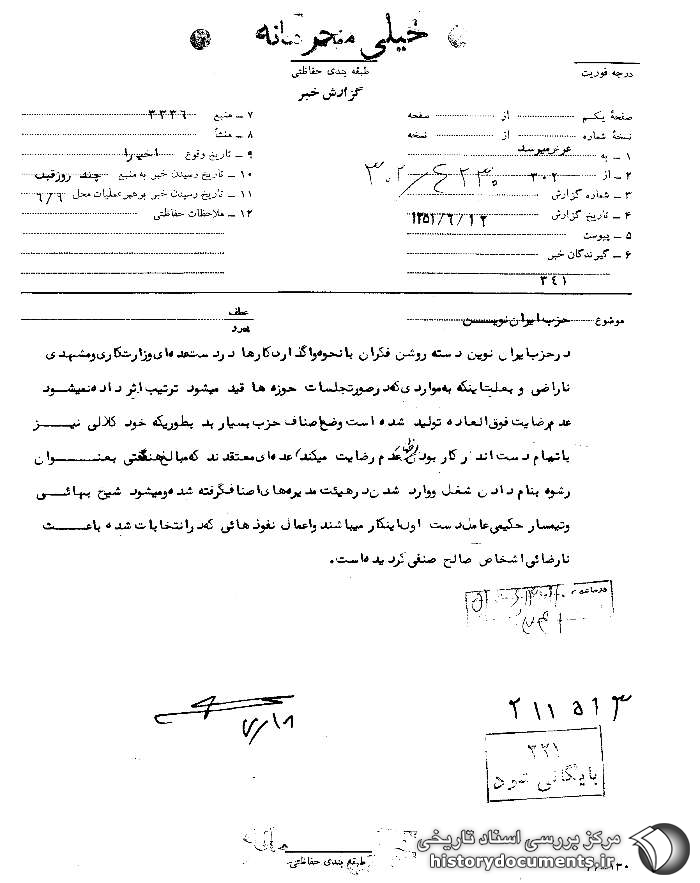 خیلی محرمانه
طبقه بندی حفاظتی
درجه فوریت
گزارش خبر
صفحهٔ یکم از صفحه
نسخهٔ شماره از نسخه
۱ ــ به عرض میرسد
۲ ــ از ۳۰۲
۳ ــ شماره گزارش
۴ ــ تاریخ گزارش ۱۳۵۱/۶/۱۲
۵ ــ پیوست
۶ ــ گیرندگان خبر
۳٤۱
۷ ــ منبع ۳۳۳٦
۸ ــ منشأ
۹ ــ تاریخ وقوع اخیرا
۱۰ ــ تاریخ رسیدن خبر به منبع چند روزقبل
۱۱ ــ تاریخ رسیدن خبر برهبر عملیات محل ۶/۶
۱۲ ــ ملاحظات حفاظتی
موضوع حزب ایران نویسن
عطف
پیرو
در حزب ایران نوین دسته روشن فکران با نحوه واگذاردن کارها در دست عده ای وزارت کاری و مشهدی
ناراضی و بعلت اینکه به مواردی که در صورتجلسات حوزه ها قید میشود ترتیب اثر داده نمیشود
عدم رضایت فوق العاده تولید شده است وضع اصناف حزب بسیار بد بطوریکه خود کلالی نیز
باتهام دست اندر کار بودن عدم رضایت میکند، عده ای معتقدند که مبالغ هنگفتی بعنـــــوان
رشوه بنام دادن شغل و وارد شدن در هیئت مدیره های اصناف گرفته شده و میشود شیخ بهائی
و تیمسار حکیمی عامل دست اول اینکار میباشند و اعمال نفوذ هائی که در انتخابات شده باعـــث
نارضائی اشخاص صالح صنفی گردیده است.
۷/۱۸
۲۱۱۵۱۳
۳۲۱
بایگانی شود
طبقه بندی حفاظتی
مرکز بررسی اسناد تاریخی
historydocuments.ir